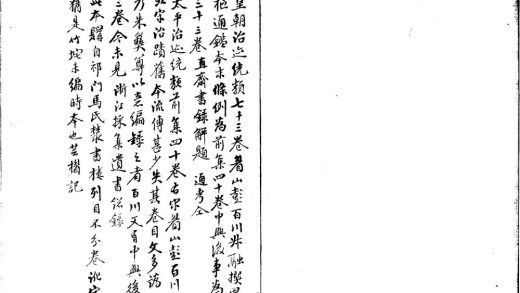 皇朝治迹統類七十三卷眉山彭百川叔融撰
樞通鑑本末條例為前集四十卷中興後事為
三十三卷直齋書錄解題 通考仝
太平治迹統類前集四十卷右宋眉山彭百川
字治蹟舊本流傳甚少失其卷目文多譌
乃朱彝尊以意編録之者百川又有中興後
三卷今未見浙江採集遺書総錄
此本購自祁門馬氏叢書樓列目不分卷訛字
猶是竹垞未編時本也芸楣記